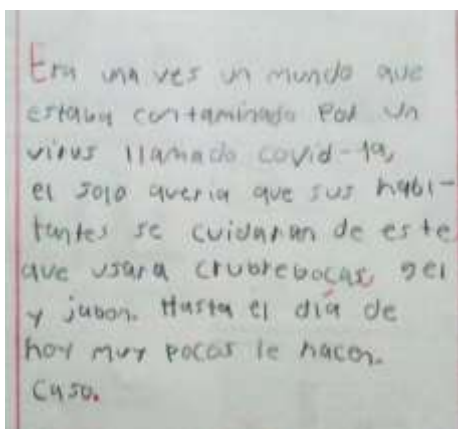 Era una ves un mundo que
estaba contaminado Por un
virus llamado covid-19,
el solo queria que sus habi-
tantes se cuidaran de este
que usara crubrebocas, gel
y jabon. Hasta el día de
hoy muy pocos le hacen.
caso.